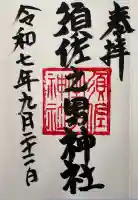 奉拝
須佐之男神社
須佐
神社
令和七年九月二十二日